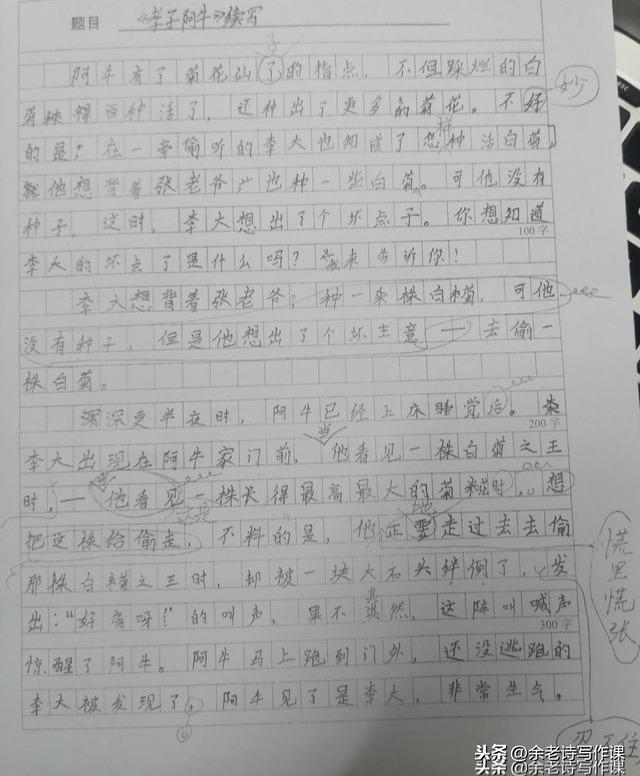 题目 《孝子阿牛》续写
子
阿牛有了菊花仙了的指点，不但踩烂的白
妙
种活了，还种出了更多的菊花。不
的是：在一旁偷听的李大也知道了想种活白菊
他想背着张老爷也种一些白菊。可他没有
种子，这时，李大想出了个坏点子。你想知道
100字
李大的坏点子是什么吗？我来告诉你！
李大想背着张老爷，种一株白菊，可他
没有种子，但是他想出了个坏主意——去偷一
株白菊。
深深更半夜时，阿牛已经上床睡觉后。
200字
李大出现在阿牛家门前，他看见一株白菊之王
时，——他看见一株长得最高最大的菊时，想
把这株给偷走，不料的是，他正要走过去去偷
那株白菊之王时，却被一块大石头绊倒了，发
慌里慌张
出：“好疼呀！”的叫声，果不其然，这阵叫喊声
300字
惊醒了阿牛。阿牛马上跑到门外，还没逃跑的
李大被发现了，阿牛见了是李大，非常生气。
忍不住
头条@余老诗写作课
头条@余老诗写作课